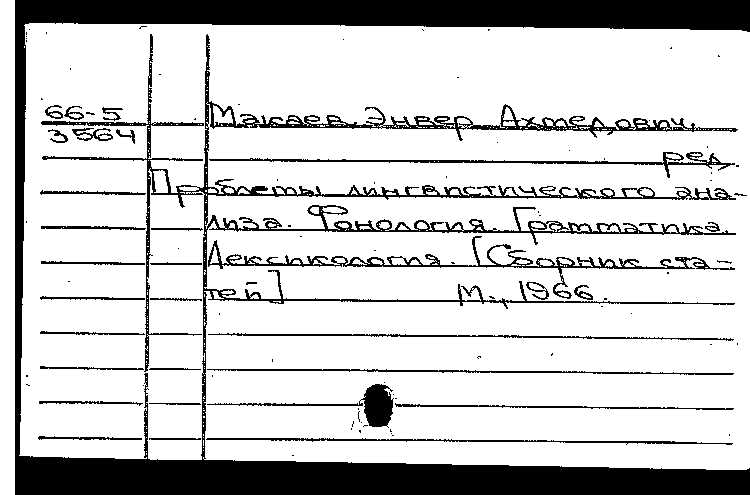 66-5
3564
Макаев, Энвер Ахмедович,
ред.
Проблемы лингвистического ана-
лиза. Фонология. Грамматика.
Лексикология. [Сборник ста-
тей] М., 1966.